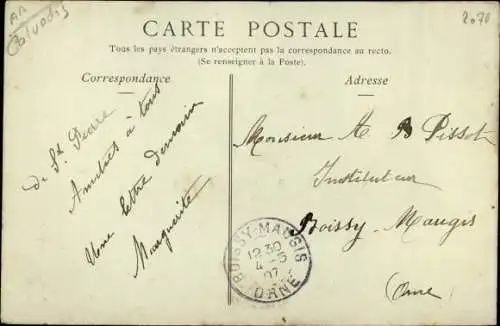 AA
Calvados
2070
CARTE POSTALE
Tous les pays étrangers n'acceptent pas la correspondance au recto.
(Se renseigner à la Poste).
Correspondance
Adresse
de St Pierre
Amitiés à tous
Une lettre demain
Marguerite
Monsieur A Pissot
Instituteur
Boissy-Maugis
Orne
BOISSY-MAUGIS
12 30
4 -
07
ORNE